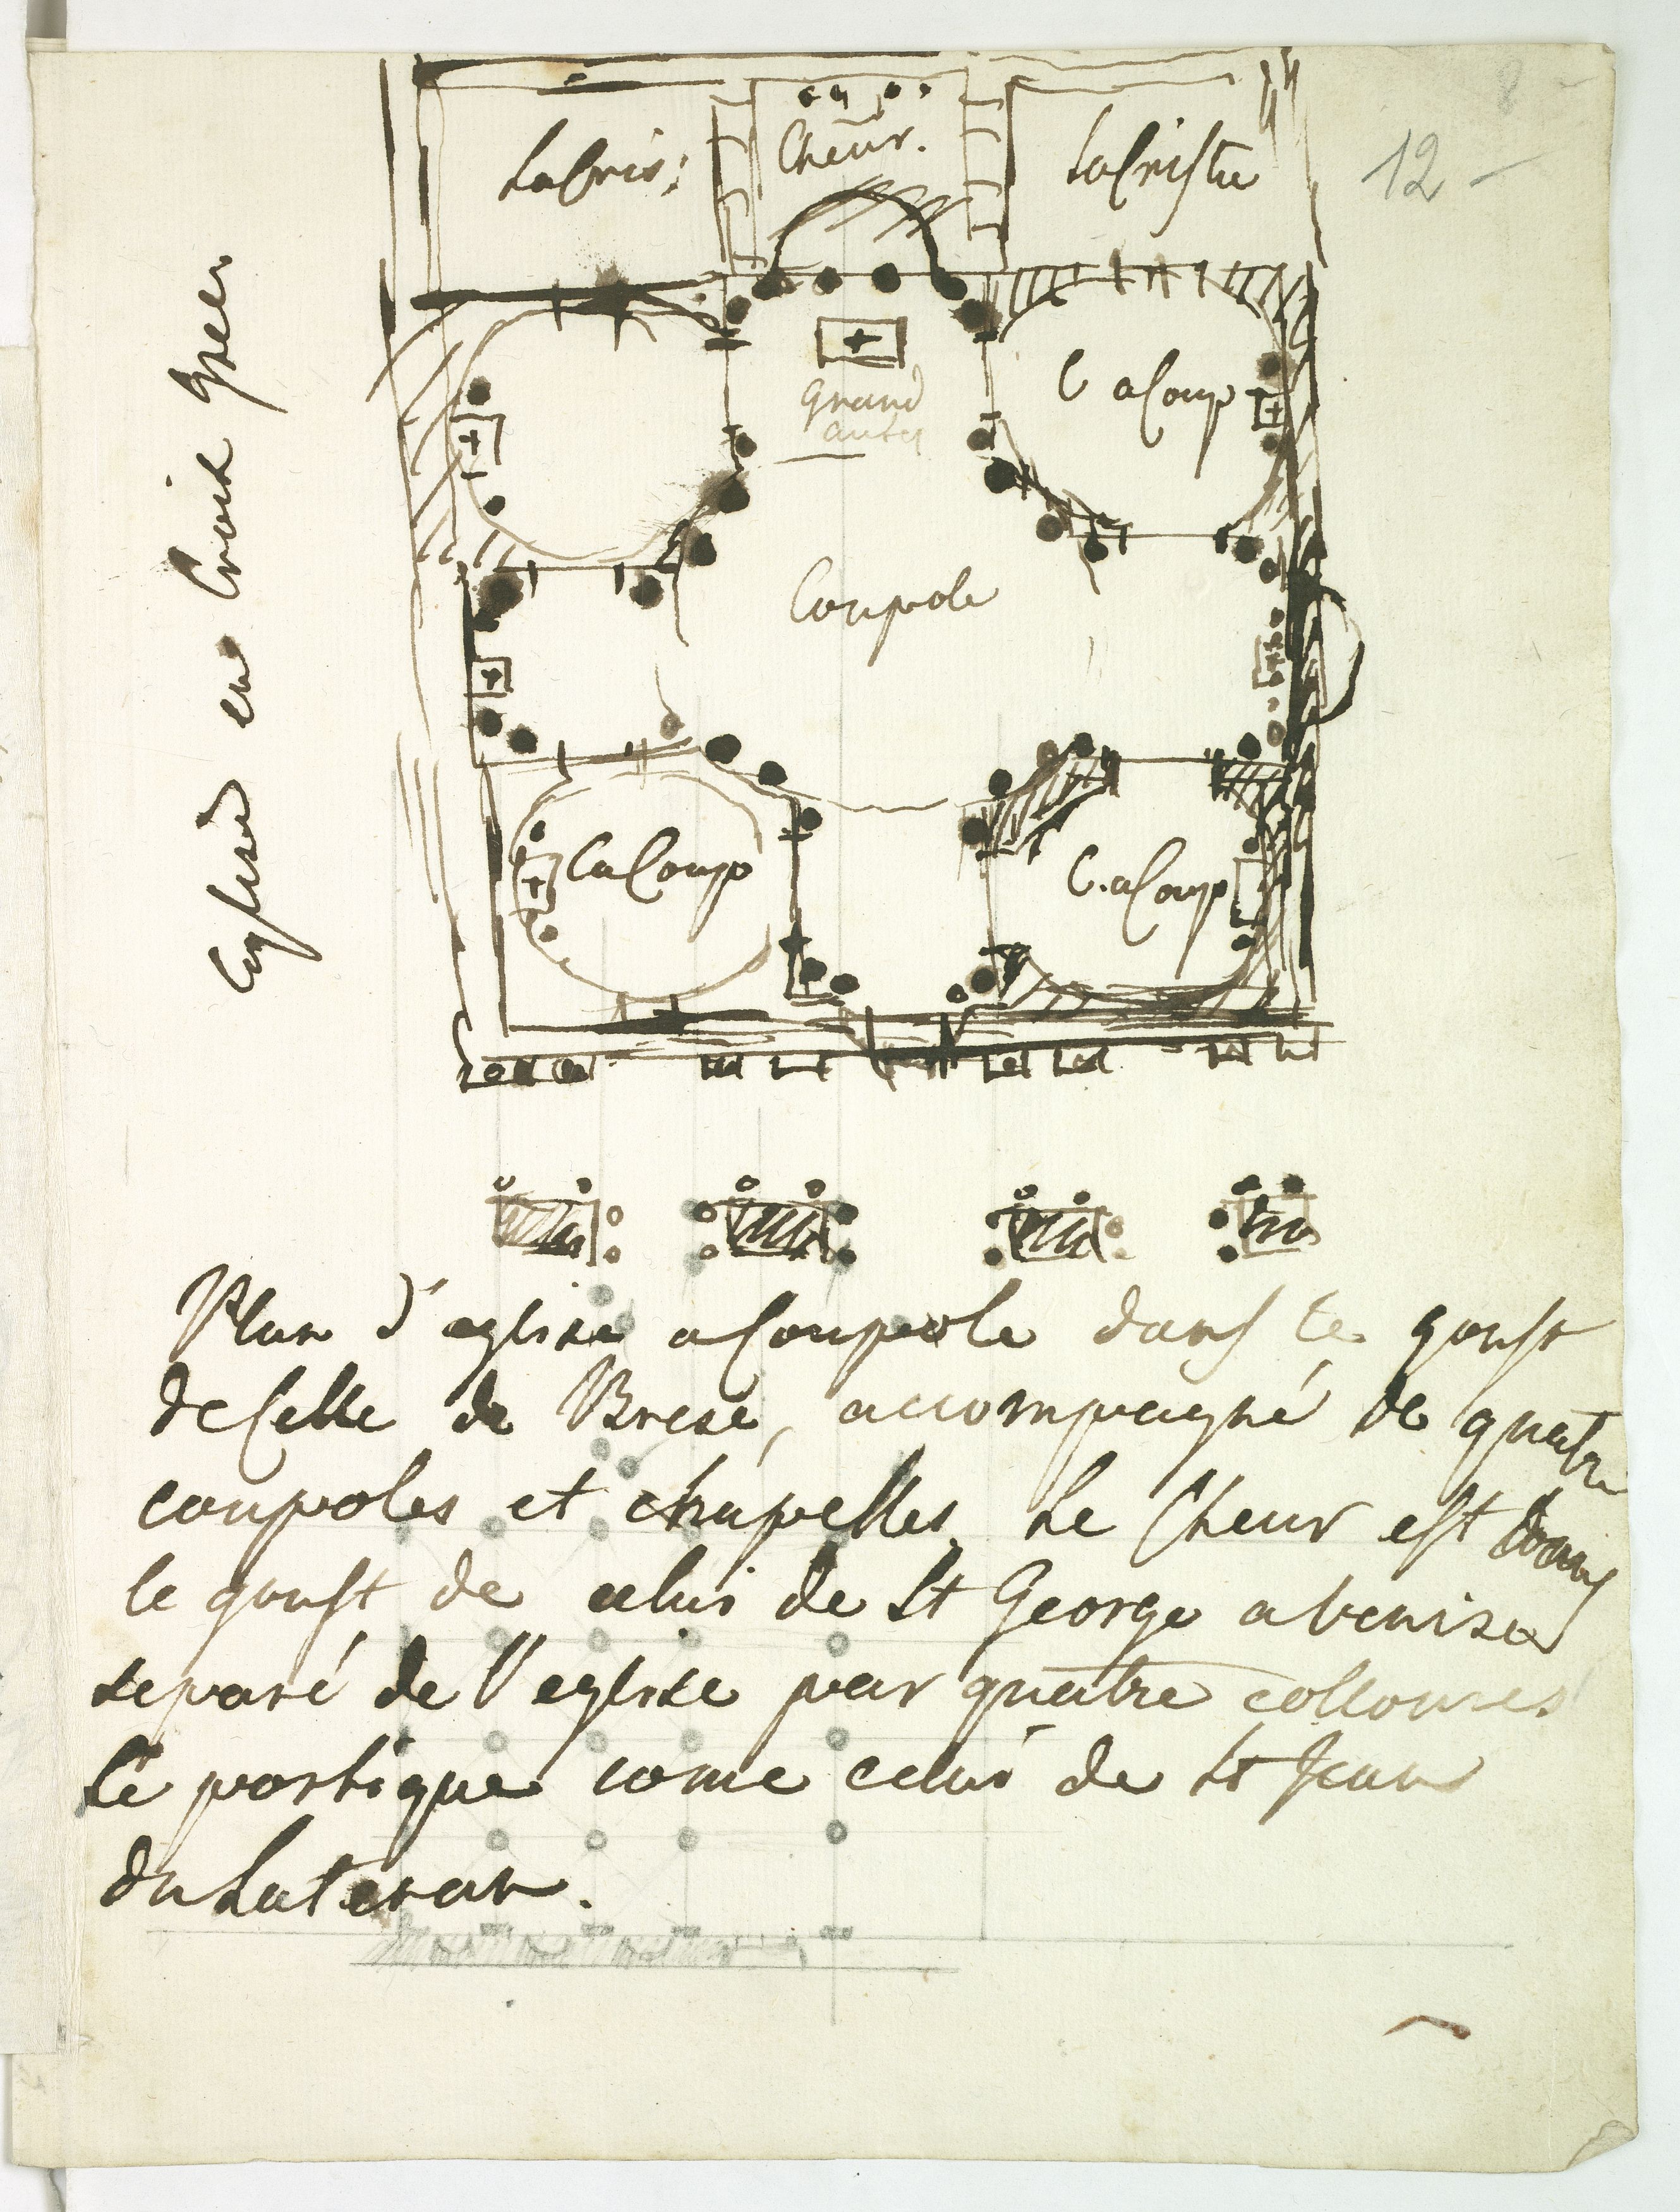 8
12 -
Sacris:
Cheur.
Sacristie
Grand
autel
C a Coup
Coupole
Ca Coup
C. a Coup
Eglise en Croix grec
Plan d'eglise a Coupole dans le goust
de Celle de Brese, accompagné de quatre
coupoles et chapelles. Le Cheur est dans
le goust de celui de St George a Venise
separé de l'eglise par quatre collonnes
Le portique come celui de St Jean
du Lateran.